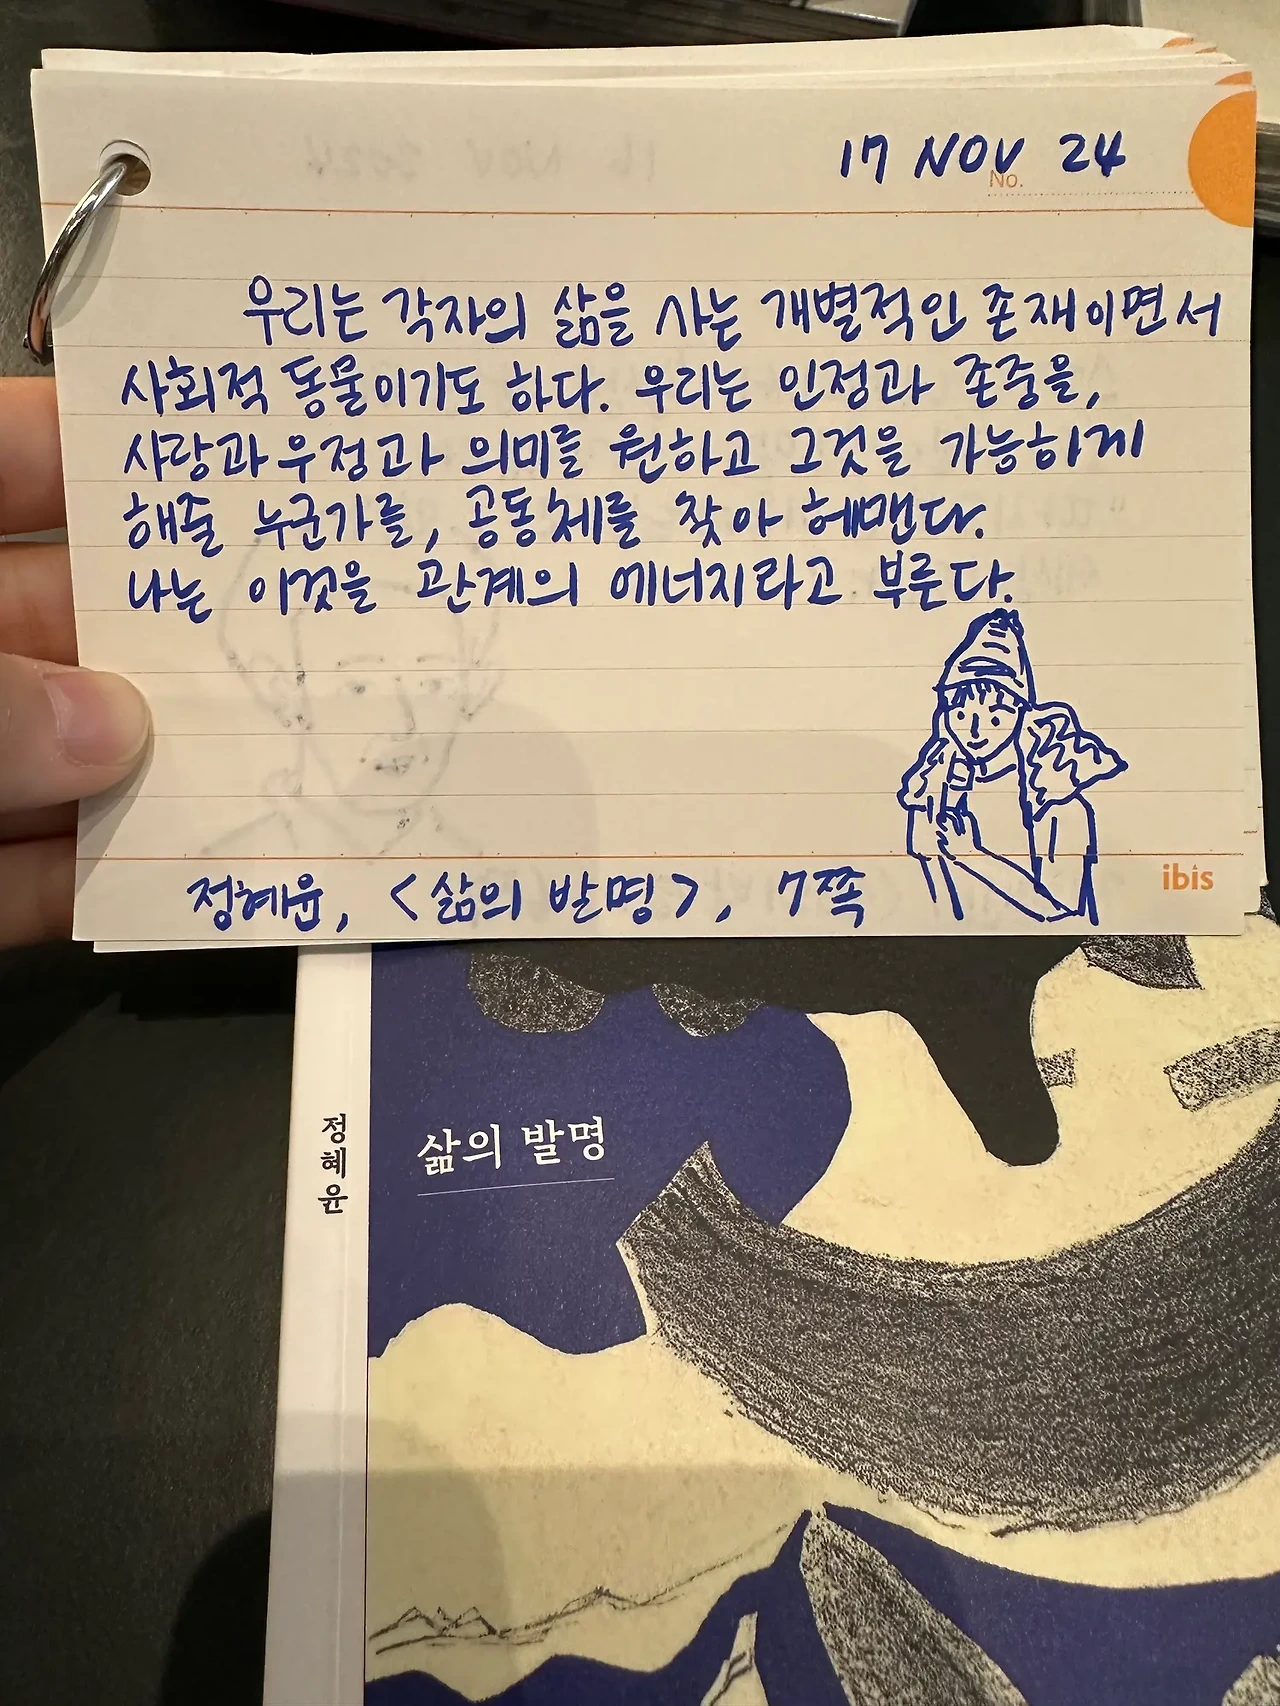 17 NOV 24
No.
우리는 각자의 삶을 사는 개별적인 존재이면서
사회적 동물이기도 하다. 우리는 인정과 존중을,
사랑과 우정과 의미를 원하고 그것을 가능하게
해줄 누군가를, 공동체를 찾아 헤맨다.
나는 이것을 관계의 에너지라고 부룬다.
정혜윤, <삶의 발명>, 7쪽
ibis
삶의 발명
정혜윤